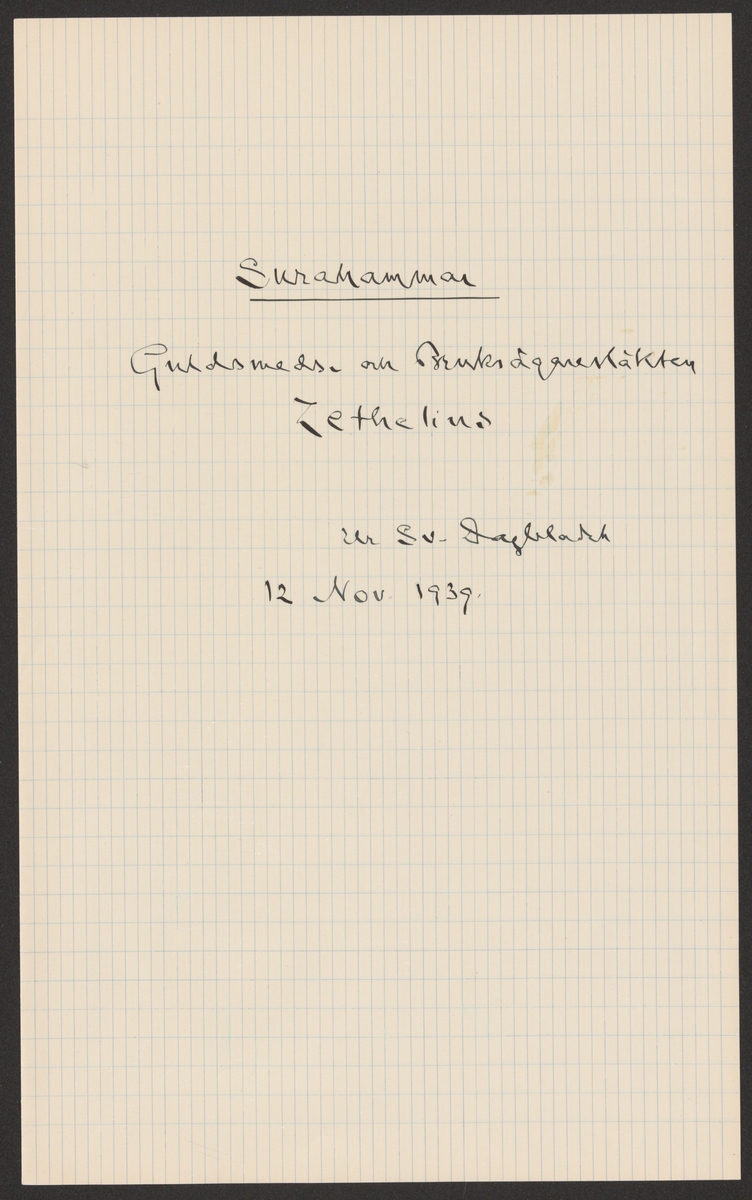 Surahammar
Guldsmeds- och Bruksägaresläkten
Zethelius
Ur Sv. Dagbladet
12 Nov. 1939.